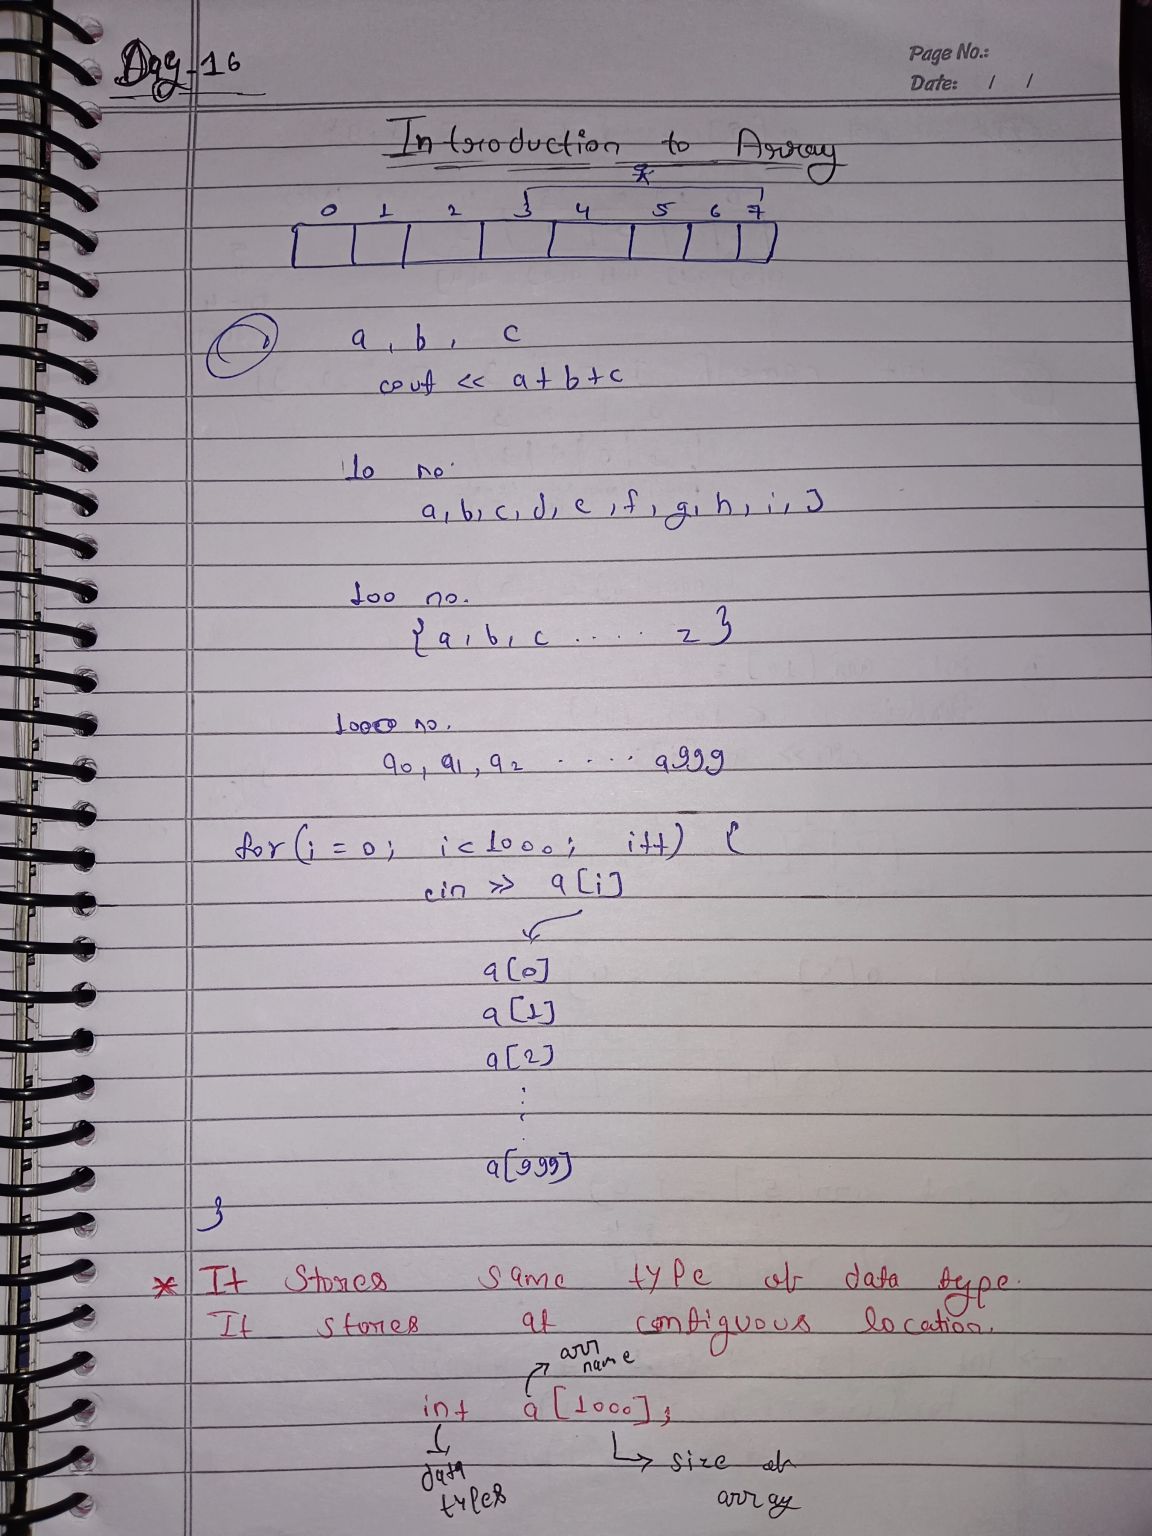 Day-16
Page No.:
Date: / /
Introduction to Array
*
0 1 2 3 4 5 6 7
a, b, c
cout << a+b+c
10 no.
a, b, c, d, e, f, g, h, i, J
100 no.
{a, b, c ..... z}
1000 no.
a0, a1, a2 ..... a999
for(i=0; i<1000; i++) {
cin >> a[i]
a[0]
a[1]
a[2]
⋮
a[999]
}
* It stores same type of data type.
It stores at contiguous location.
arr name
int a[1000];
data types
size of array